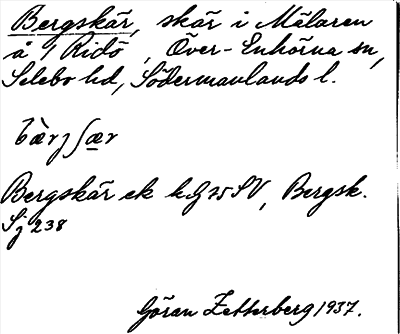 Bergskär, skär i Mälaren
å 1 Ridö, Över-Enhörna sn,
Selebo hd, Södermanlands l.
bæ̀rjʃær
Bergskär ek kG 25 SV, Bergsk.
Sj 238
Göran Zetterberg 1937.